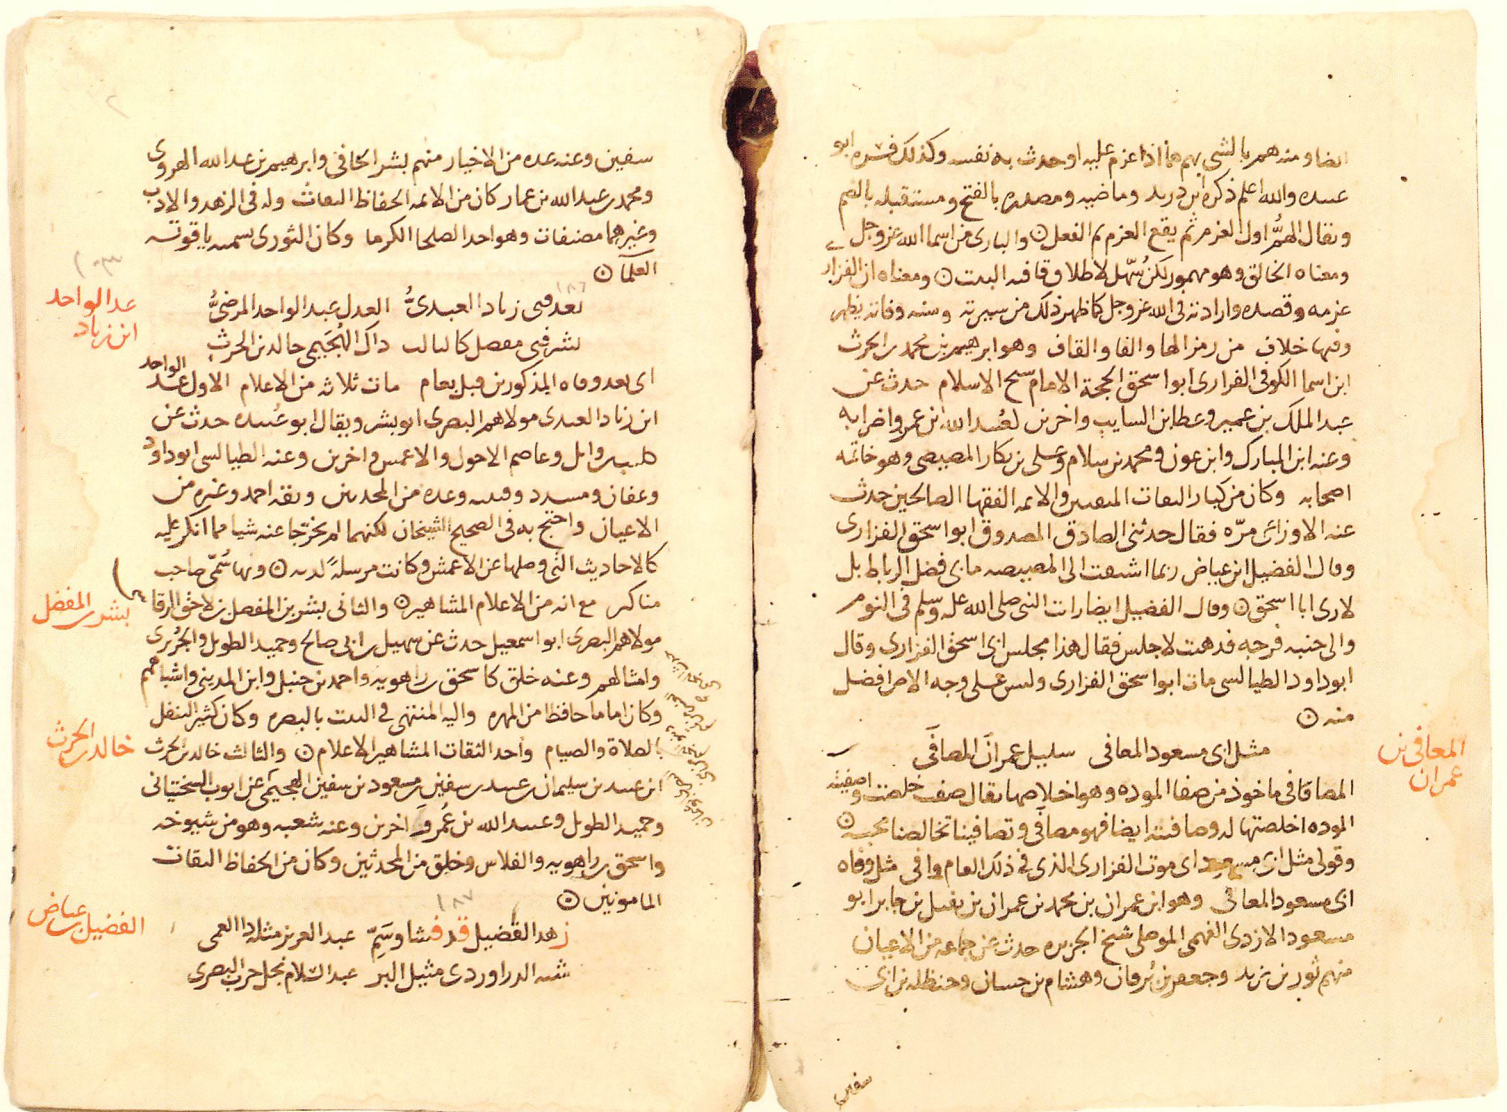 ايضا ومنه هم بالشي يهم هما اذا عزم عليه او حدث به نفسه وكذلك فسره ابو
عبيده والله اعلم ذكره ابن دريد وماضيه ومصدره بالفتح ومستقبله بالضم
ويقال الهم اول العزم ثم يقع العزم ثم الفعل ۞ والباري من اسما الله عز وجل
ومعناه الخالق وهو مهموز لكن سهل لاطلاق قافيه البيت ۞ ومعناه ان الفزاري
عزمه وقصده وارادته في الله عز وجل كما ظهر ذلك من سيرته وسنه وفاته يظهر
وفيها خلاف من رمز الها والفا والقاف وهو ابرهيم بن محمد بن الحرث
ابن اسما الكوفي الفزاري ابو اسحق الحجة الامام شيخ الاسلام حدث عن
عبد الملك بن عمير وعطا بن السايب واخرين كعبيد الله ابن عمر واضرابه
وعنه ابن المبارك وابن عون ومحمد بن سلام وعلي بن بكار المصيصي وهو خاتمه
اصحابه وكان من كبار الثقات المتقنين والايمه الفقها الصالحين حدث
عنه الاوزاعي مرّه فقال حدثني الصادق المصدوق ابو اسحق الفزاري
وقال الفضيل ابن عياض ربما اشتقت الى المصيصه ما بي فضل الرباط بل
لارى ابا اسحق ۞ وقال الفضيل ايضا رايت النبي صلى الله عليه وسلم في النوم
والى جنبه فرجه فذهبت لاجلس فقال هذا مجلس ابي اسحق الفزاري وقال
ابو داود الطيالسي مات ابو اسحق الفزاري وليس على وجه الارض افضل
منه ۞
مثل ابي مسعود المعافى سليل عمرانَ المصافَى
المعافى بن
عمران
المصافا في ماخوذ من صفا الموده وهو اخلاصها يقال صفت خلصت واصفيته
الموده اخلصتها له وصافيته ايضا فهو مصافى وتصافينا تخالصنا محبه ۞
وقولي مثل ابي مسعود اي موت الفزاري الذي في ذلك العام وافى مثل وفاه
ابي مسعود المعافى وهو ابن عمران بن محمد بن عمران بن نفيل بن جابر ابو
مسعود الازدي الفهمي الموصلي شيخ الجزيره حدث عن جماعه من الاعيان
منهم ثور بن يزيد وجعفر بن برقان وهشام بن حسان وحنظله بن ابي
سفين
سفين وعنه عده من الاخيار منهم بشر الحافي وابرهيم بن عبد الله الهروي
ومحمد بن عبد الله بن عمار كان من الايمه الحفاظ الثقات وله في الزهد والادب
وغيرهما مصنفات وهو احد الصلحا الكرما وكان الثوري يسميه ياقوته
العلما ۞
١٨٦
بعد قضى زياد العبديُّ العدل عبد الواحد المرضيُّ
عبد الواحد
ابن زياد
بشر قضى مفضل كالثالث ذاك الهُجَيمي خالد بن الحرث
اي بعد وفاه المذكورين قبل بعام مات ثلاثه من الاعلام الاول عبد الواحد
ابن زياد العبدي مولاهم البصري ابو بشر ويقال ابو عبيده حدث عن
كليب بن وايل وعاصم الاحول والاعمش واخرين وعنه الطيالسي ابو داود
وعفان ومسدد وقتيبه وعده من المحدثين وثقه احمد وغيره من
الاعيان واحتج به في الصحيح الشيخان لكنهما لم يخرجا عنه شيا مما انكر عليه
كالاحاديث التي وصلها عن الاعمش وكانت مرسلةً لديه ۞ وبها سُمّي صاحب
مناكير مع انه من الاعلام المشاهير ۞ والثاني بشر بن المفضل بن لاحق الرقاشي
بشر بن المفضل
مولاهم البصري ابو اسمعيل حدث عن سهيل بن ابي صالح وحميد الطويل والجُريري
وامثالهم وعنه خلق كاسحق بن راهويه واحمد بن حنبل وابن المديني واشباههم
وكان اماما حافظا من المهره واليه المنتهى في الثبت بالبصره وكان كثير التنفل
بالصلاة والصيام واحد الثقات المشاهير الاعلام ۞ والثالث خالد بن الحرث
خالد بن الحرث
ابن عبيد بن سليمان بن عبيد بن سفين بن مسعود بن سفين الهجيمي عن ايوب السختياني
وحميد الطويل وعبيد الله بن عُمر واخرين وعنه شعبه وهو من شيوخه
واسحق بن راهويه والفلاس وخلق من المحدثين وكان من الحفاظ الثقات
المامونين ۞
١٨٧
زهد الفضيل قد فشا وسَمِيّ عبد العزيز مثله ذا العمي
الفضيل بن عياض
شبه الدراوردي مثيل البر عبد السّلام نجل حرب البصري